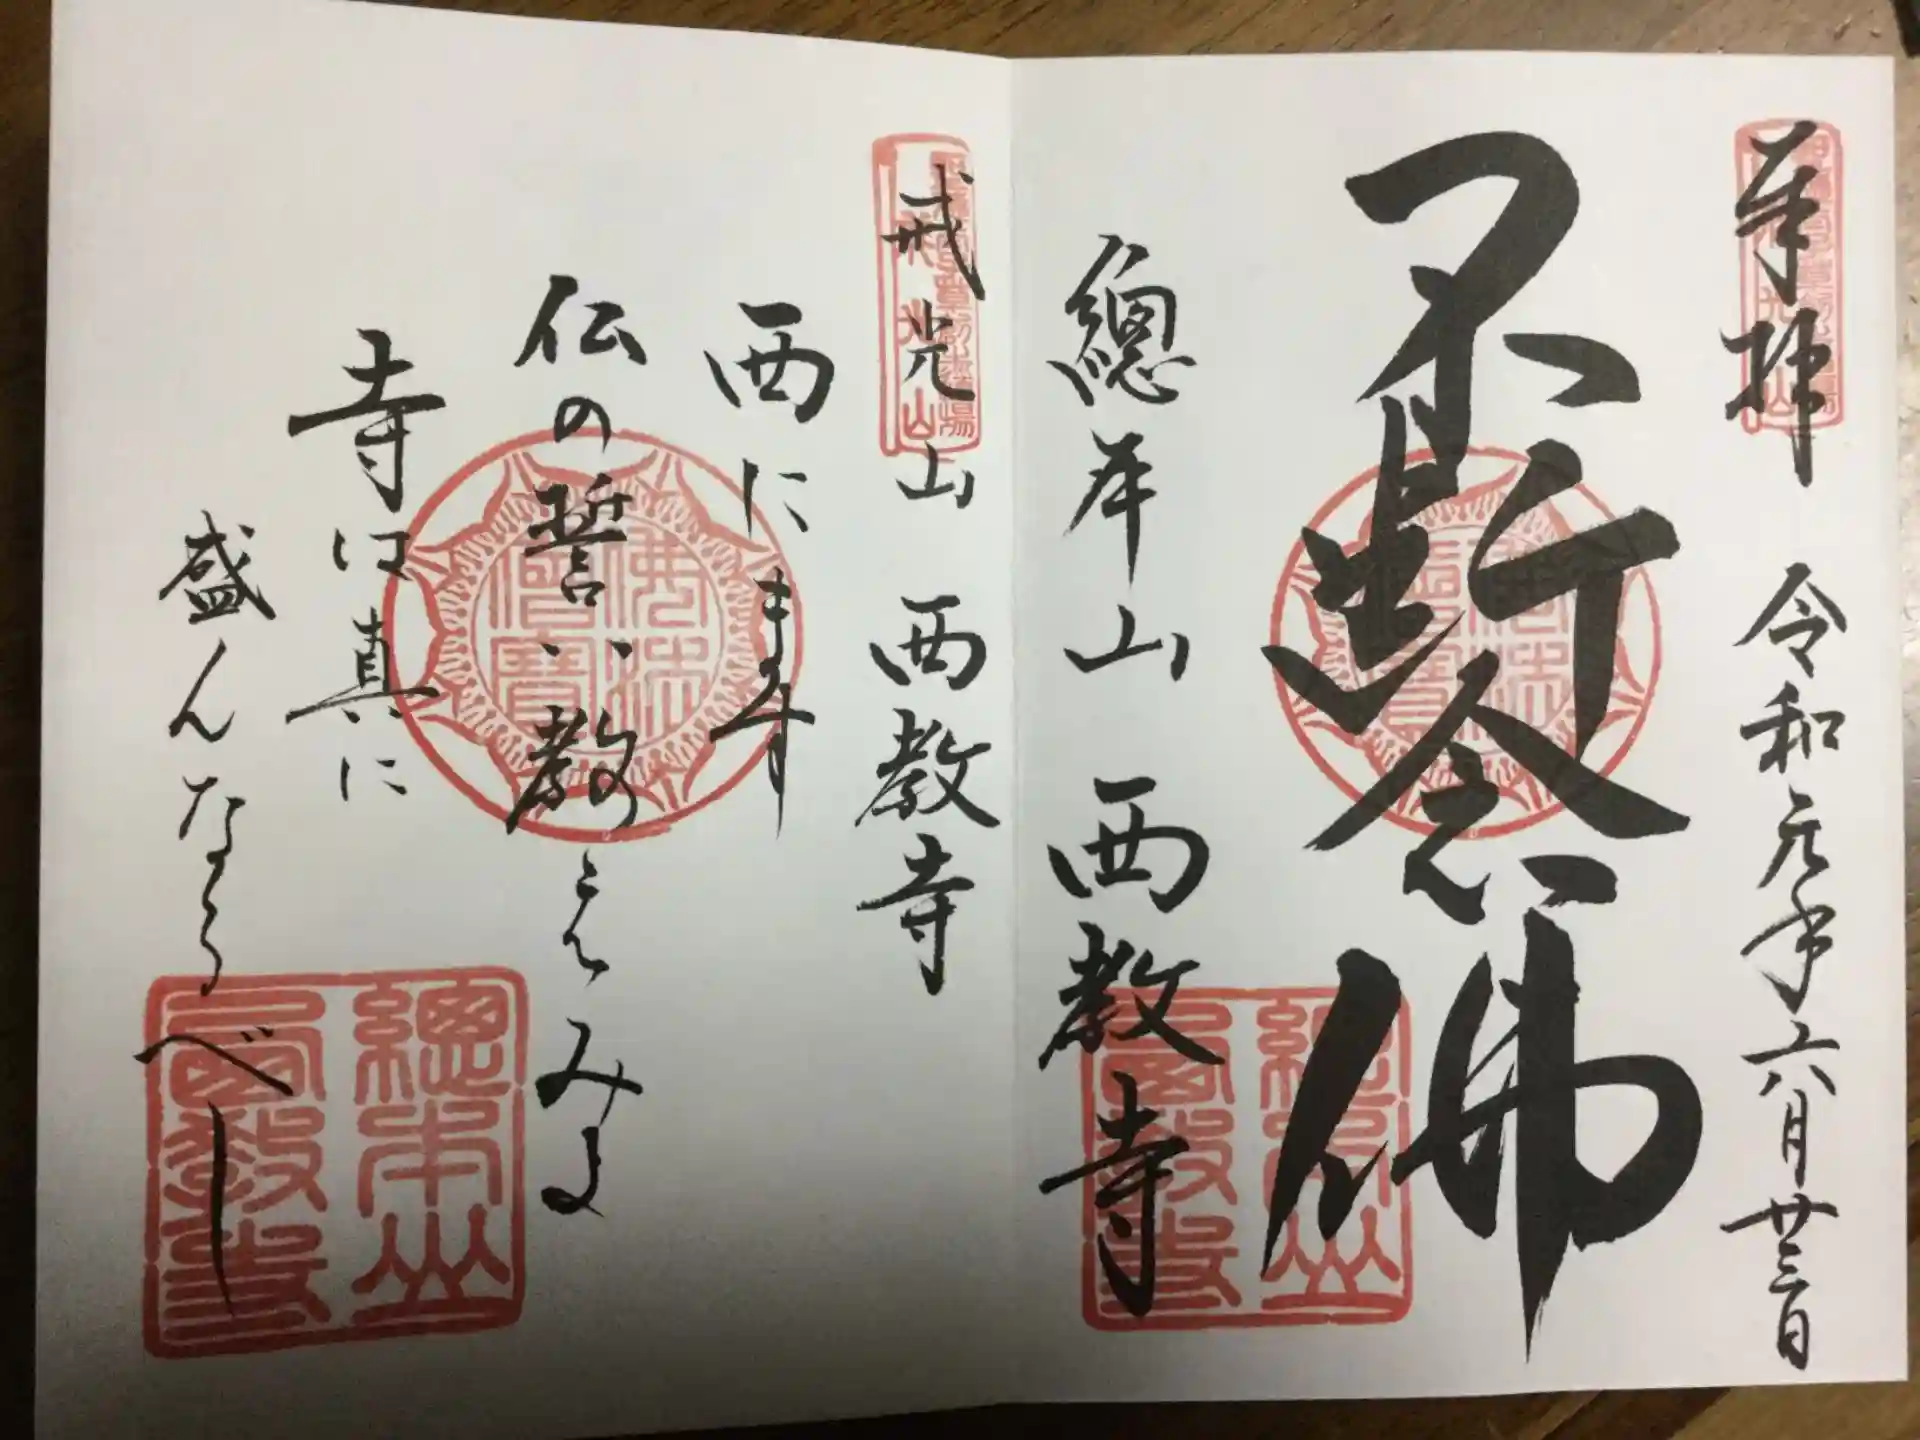 奉拝 令和元年六月廿三日
不断念佛
總本山 西教寺
戒光山 西教寺
西にます
仏の誓い教
寺は真に
盛んなるべし
佛法僧寶
總本山西教寺